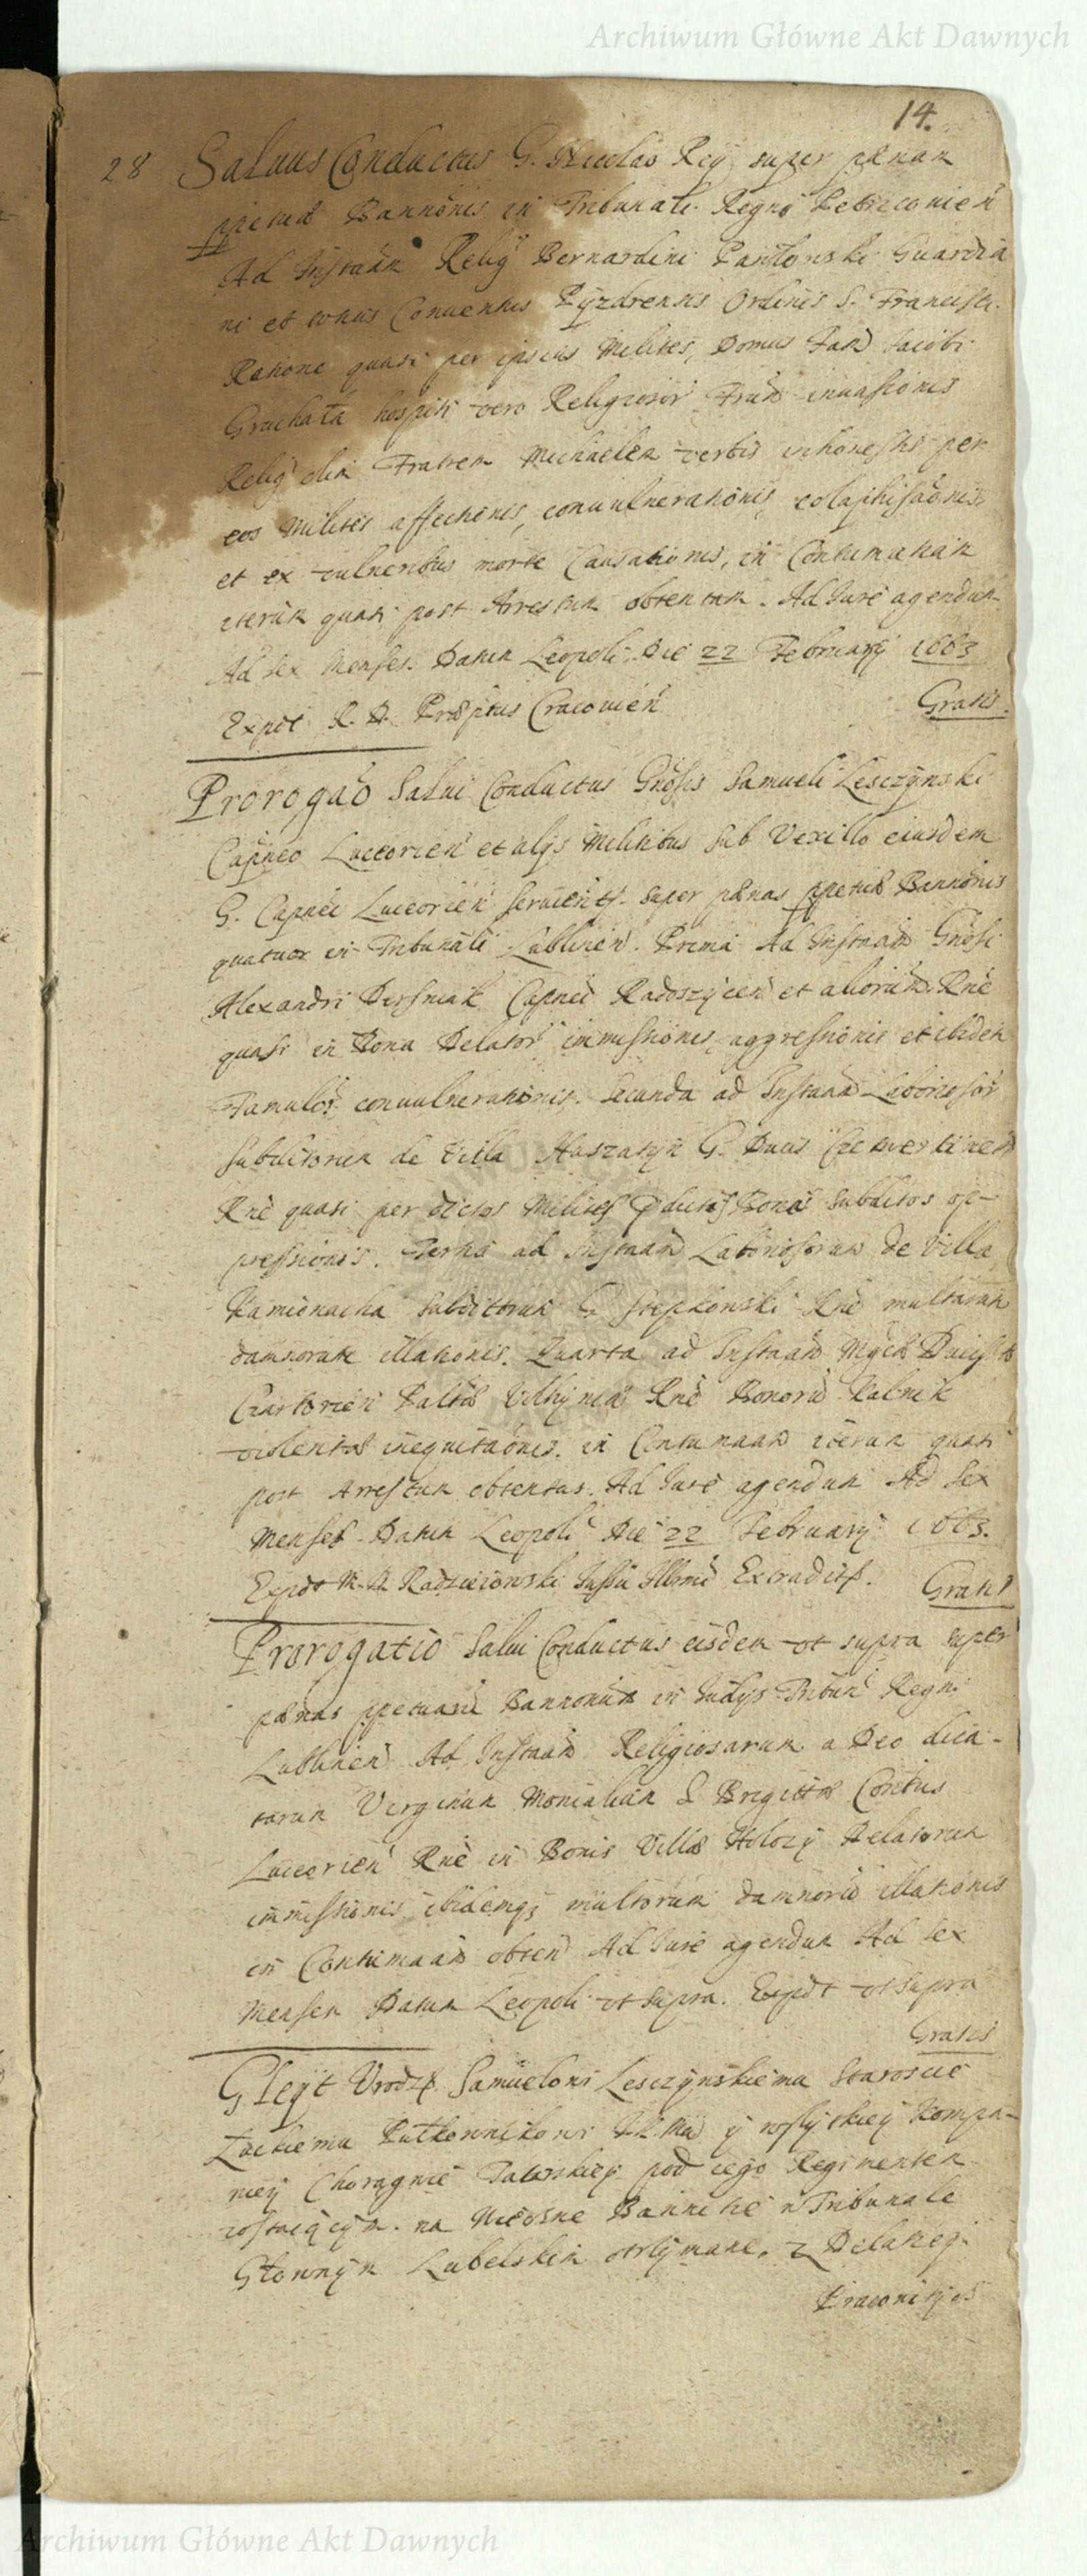 Archiwum Główne Akt Dawnych
14.
28 Saluus Conductus G. Nicolao Rey super pænam
ppetuæ Bannonis in Tribunali Regni Petricouien
Ad Instaan Relig Bernardini Guardia
ni et totius Conuentus Pyzdrensis Ordinis S. Francisci.
Ratione quasi per ipsius Milites, Domus Fam Jacobi
hospiti vero Religiosor Fram inuasionis
Relig olim Fratrem Michaelem verbis inhonestis per
eos Milites affectionis, conuulnerationis, colaphisaonis,
et ex vulneribus morte Causationis, in Contumatiam
iterum quasi post Arrestum obtentam. Ad Jure agendum
Ad sex Menses. Datum Leopoli. Die 22 February 1663
Expdt R. D. Præptus Cracouien
Gratis.
Prorogao Salui Conductus Gnosis Samueli Lesczynski
Capneo Luceorien et alys Militibus sub Vexillo eiusdem
G. Capnei Luceorien seruient. super pænas ppetuæ Bannonis
quatuor in Tribunali Lublinen. Prima Ad Instaam Gnosi
Alexandri Dersniak Capnei Radoszycen et aliorum. Rne
quasi in Bona Delator immissionis, aggressionis et ibidem
Famulor conuulnerationis. Secunda ad Instaam Laboriosor
Subditorum de Villa G. Ducis Czetwertinen
Rne quasi per dictos Milites Bonis Subditos op-
pressionis. Tertia ad Instaam Laboriosorum de Villa
Kamionacha Subditorum G Stepkowski Rne multarum
damnorum illationis. Quarta ad Instaam Mgci Ducis
Czartorien Paltdi Volhyniæ Rne Bonoru Kalnik
violentæ inequitaonis. in Contumaam iterum quasi
post Arrestum obtentas. Ad Jure agendum Ad Sex
Menses. Datum Leopoli Die 22 February 1663.
Expdt M. D. Radzieiowski Jussu Illmi Extradit.
Gratis
Prorogatio Salui Conductus eisdem vt supra super
pænas ppetuaru Bannonum in Judys Tribun Regni
Lublinen Ad Instaam Religiosarum a Deo dica-
tarum Virginum Monialium S Brigittæ Contus
Luceorien Rne in Bonis Villæ Holozy Delatorum
immissionis ibidemq; multorum damnoru illationis
in Contumaam obten Ad Jure agendum Ad sex
Menses Datum Leopoli vt supra. Expdt vt supra
Gratis
Gleyt Vrodz. Samuelowi Lesczynskiemu Staroscie
Luckiemu Pułkownikowi y wszytkiey Kompa-
niey Chorągwie Tatarskiey pod iego Regimentem
zostaiącym. na Wieczne Bannitie w Tribunale
Głownym Lubelskim otrzymane, z Delatiey
Pracowitych
Archiwum Główne Akt Dawnych